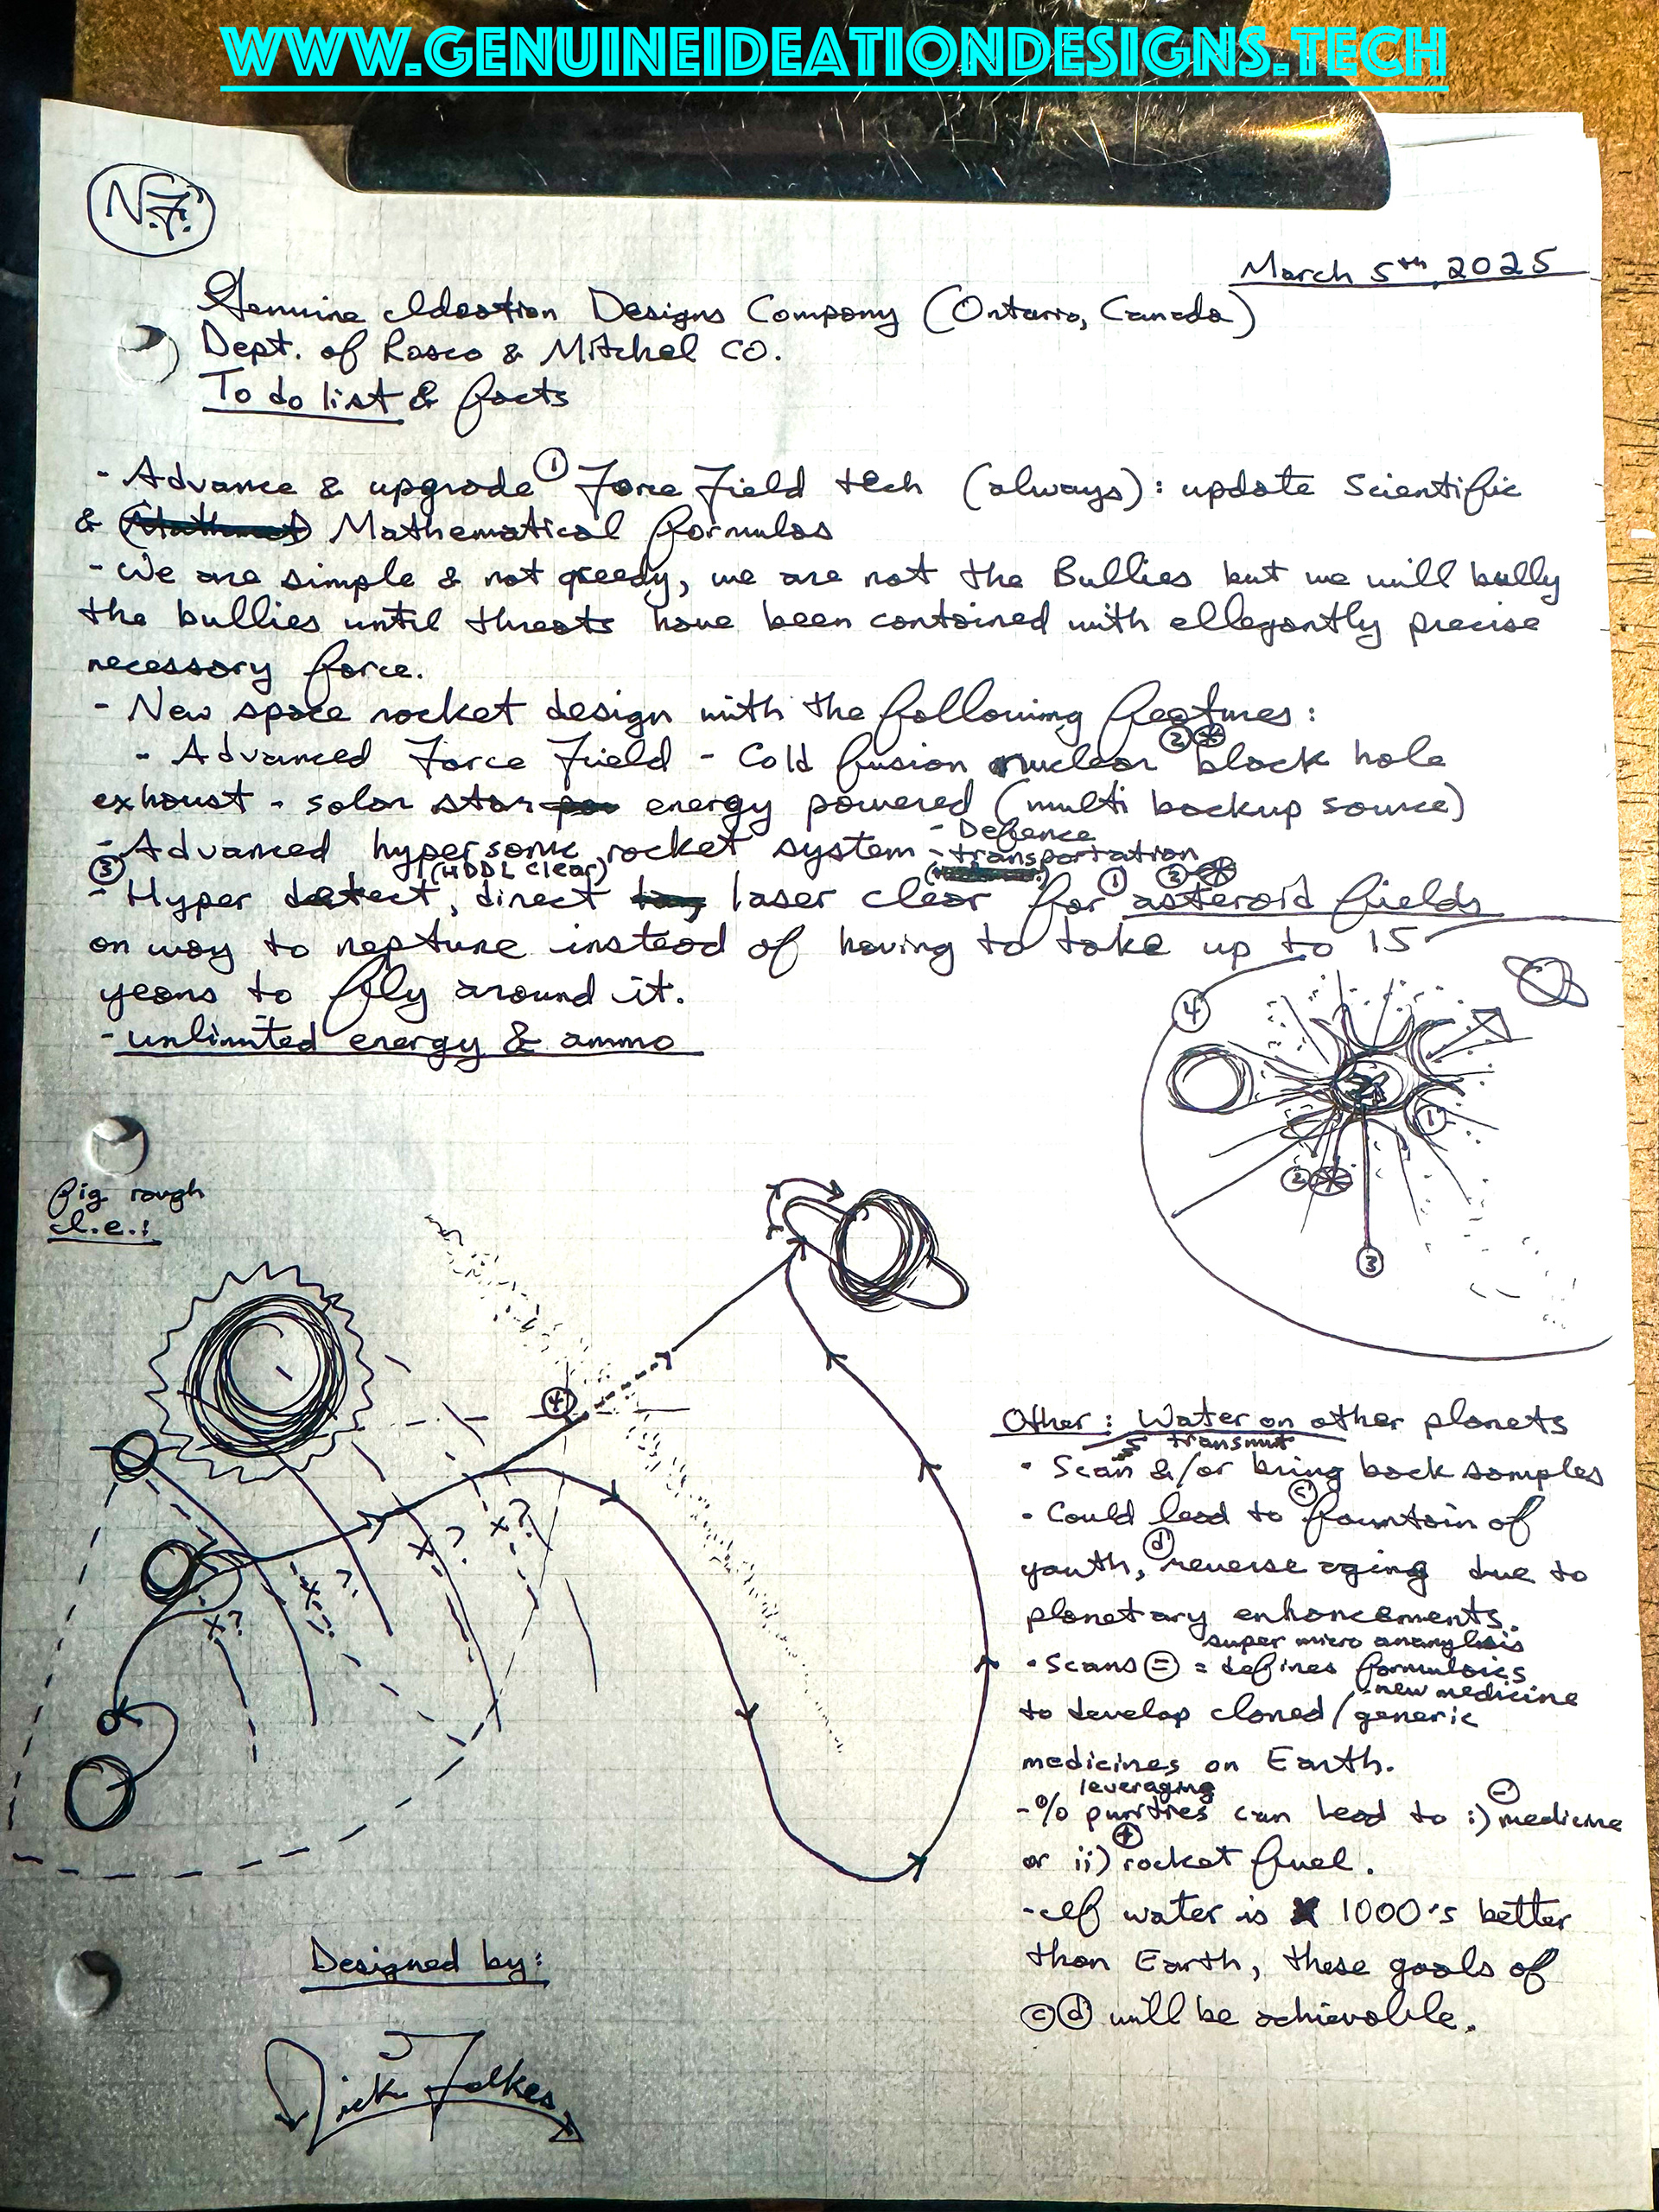 WWW.GENUINEIDEATIONDESIGNS.TECH
March 5th, 2025
Genuine Ideation Designs Company (Ontario, Canada)
Dept. of Rosco & Mitchel CO.
To do list & facts
- Advance & upgrade ① Force Field tech (always): update Scientific
& Mathematical formulas
- We are simple & not greedy, we are not the Bullies but we will bully
the bullies until threats have been contained with ellegantly precise
necessary force.
- New space rocket design with the following features:
- Advanced Force Field - Cold fusion nuclear ② black hole
exhaust - solar star energy powered (multi backup source)
- Advanced hypersonic rocket system - Defence
- transportation
③ (HDDL Clear) ① ②
- Hyper detect, direct laser clear for asteroid fields
on way to neptune instead of having to take up to 15
years to fly around it.
- unlimited energy & ammo
④
①
②
③
fig rough
I.e.:
④
x?
x?
x?
x?
Other: Water on other planets
transmit
• Scan & /or bring back samples
• Could lead to ⓒ fountain of
youth, ⓓ reverse aging due to
planetary enhancements.
super micro ananylisis
• Scans = defines formulaics
- new medicine
to develop cloned/generic
medicines on Earth.
leveraging
- % purities can lead to i) medicine
or ii) rocket fuel.
- If water is 1000's better
than Earth, these goals of
ⓒ ⓓ will be achievable.
Designed by:
Nick Folkes